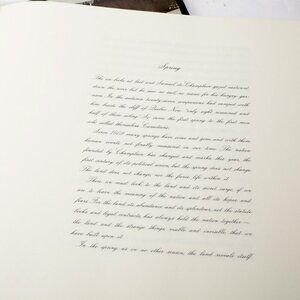 Spring
The ice broke at last and Samuel de Champlain gazed eastward
down the river but he saw no sail, no succor for his hungry gar-
rison. In the autumn twenty-seven companions had camped with
him beside the cliff of Quebec. Now only eight remained and
half of them ailing. So came the first spring to the first men
who called themselves Canadians.
Since 1609 many springs have come and gone and with them
human events not finally reckoned in our time. The nation
founded by Champlain has changed and marks this year, the
first century of its political union, but the spring does not change.
The land does not change, nor the force of life within it.
There we must look, to the land and its mixed cargo, if we
are to learn the meaning of the nation and all its hopes and
fears. For the land, its abundance and its splendour, not the statute
books and legal contracts, has always held the nation together—
the land and the strange things, visible and invisible, that we
have built upon it.
In the spring, as in no other season, the land reveals itself